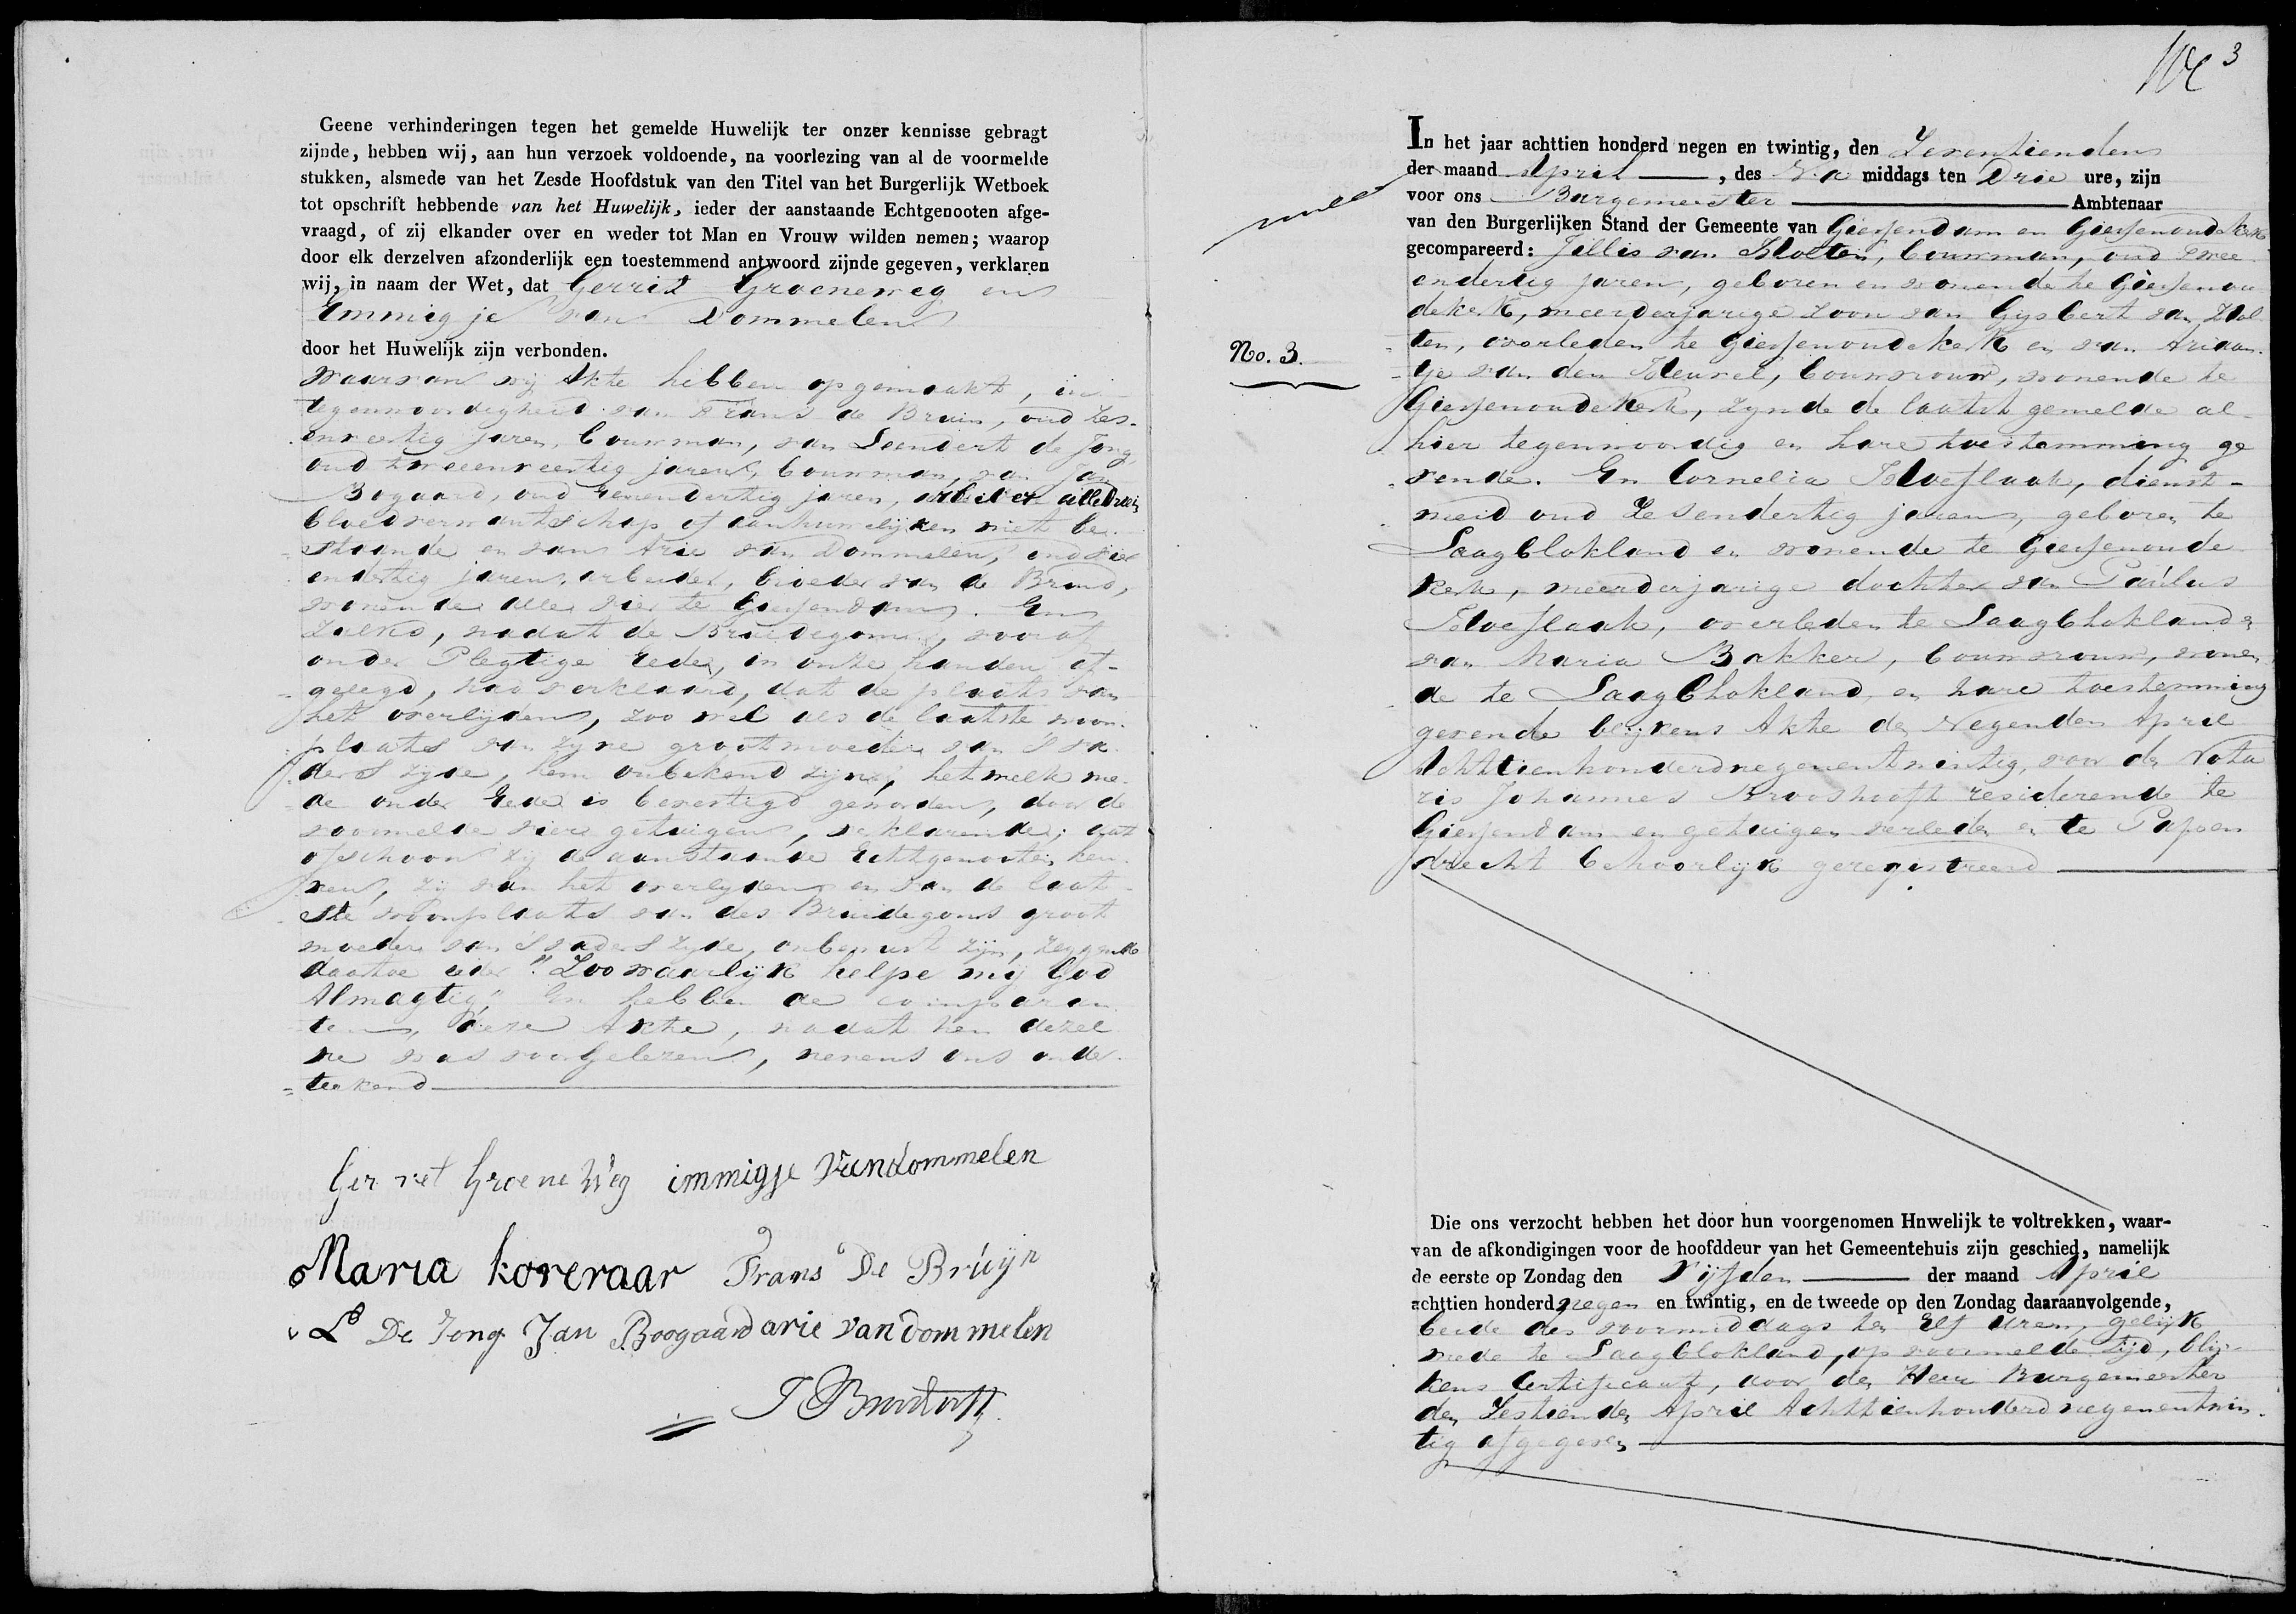 Geene verhinderingen tegen het gemelde Huwelijk ter onzer kennisse gebragt
zijnde, hebben wij, aan hun verzoek voldoende, na voorlezing van al de voormelde
stukken, alsmede van het Zesde Hoofdstuk van den Titel van het Burgerlijk Wetboek
tot opschrift hebbende van het Huwelijk, ieder der aanstaande Echtgenooten afge-
vraagd, of zij elkander over en weder tot Man en Vrouw wilden nemen; waarop
door elk derzelven afzonderlijk een toestemmend antwoord zijnde gegeven, verklaren
wij, in naam der Wet, dat Gerrit Groeneweg en
Emmigje van Dommelen
door het Huwelijk zijn verbonden.
Waarvan wij Akte hebben opgemaakt, in
tegenwoordigheid van Frans de Bruin, oud zes-
enveertig jaren, bouwman, van Leendert de Jong
oud tweeenveertig jaren, bouwman, van Jan
Bogaard, oud eenendertig jaren, arbeider alle drie in
bloedverwantschap of aanhuwelijken niet be-
staande en van Arie van Dommelen, oud vier
endertig jaren, arbeider, broeder van de Bruid,
wonende alle vier te Giessendam. En
zulks, nadat de Bruidegom, vooraf
onder Plegtige Eede, in onze handen af-
gelegd, had verklaard, dat de plaats van
het overlijden, zoo wel als de laatste woon-
plaats van zyne grootmoeder van 's va-
ders zijde, hem onbekend zijn, hetwelk me-
de onder Eede is bevestigd geworden, door de
voormelde vier getuigen, verklarende, dat
ofschoon zij de aanstaande Echtgenooten ken-
nen, zij van het overlyden en van de laat-
ste woonplaats van des Bruidegoms groot
moeder van 's vaders zyde, onbewust zijn, zeggende
daartoe ieder "Zoo waarlijk helpe mij God
Almagtig" En hebben de comparan
ten, deze Akte, nadat hen dezel
ve was voorgelezen, nevens ons onder-
teekend
Ger ret Groene Weg immigje VanDommelen
Maria koreraar Frans De Bruijn
Ld De Jong Jan Boogaard arie van dommelen
3
In het jaar achttien honderd negen en twintig, den Zeventienden
der maand April, des Na middags ten Drie ure, zijn
voor ons Burgemeester Ambtenaar
van den Burgerlijken Stand der Gemeente van Giessendam en Giessenoudekerk
gecompareerd: Jillis van Houten, bouwman, oud twee
endertig jaren, geboren en wonende te Giessenou
dekerk, meerderjarige zoon van Gijsbert van Hou
ten, overleden te Giessenoudekerk en van Ariaan-
No. 3.
tje van den Heuvel, bouwvrouw, wonende te
Giessenoudekerk, zynde de laatst gemelde al-
hier tegenwoordig en hare toestemming ge
vende. En Cornelia Hoeflaak, dienst-
meid oud Zesendertig jaren, geboren te
Laagblokland en wonende te Giessenoude
kerk, meerderjarige dochter van Paulus
Hoeflaak, overleden te Laagblokland en
van Maria Bakker, bouwvrouw, wonen
de te Laagblokland, en hare toestemming
gevende blijkens Akte den Negenden April
Achttienhonderdnegenentwintig, voor den Nota
ris Johannes Brooshooft residerende te
Giessendam en getuigen verleden en te Papen
drecht behoorlijk geregistreerd
Die ons verzocht hebben het door hun voorgenomen Hnwelijk te voltrekken, waar-
van de afkondigingen voor de hoofddeur van het Gemeentehuis zijn geschied, namelijk
de eerste op Zondag den Vijfden der maand April
achttien honderd negen en twintig, en de tweede op den Zondag daaraanvolgende,
beide des voormiddags ten Elf uren, gelijk
mede te Laagblokland, op voormelde tijd, blij-
kens Certificaat, door den Heer Burgemeester
den Zestienden April Achttienhonderdnegenentwin-
tig afgegeven